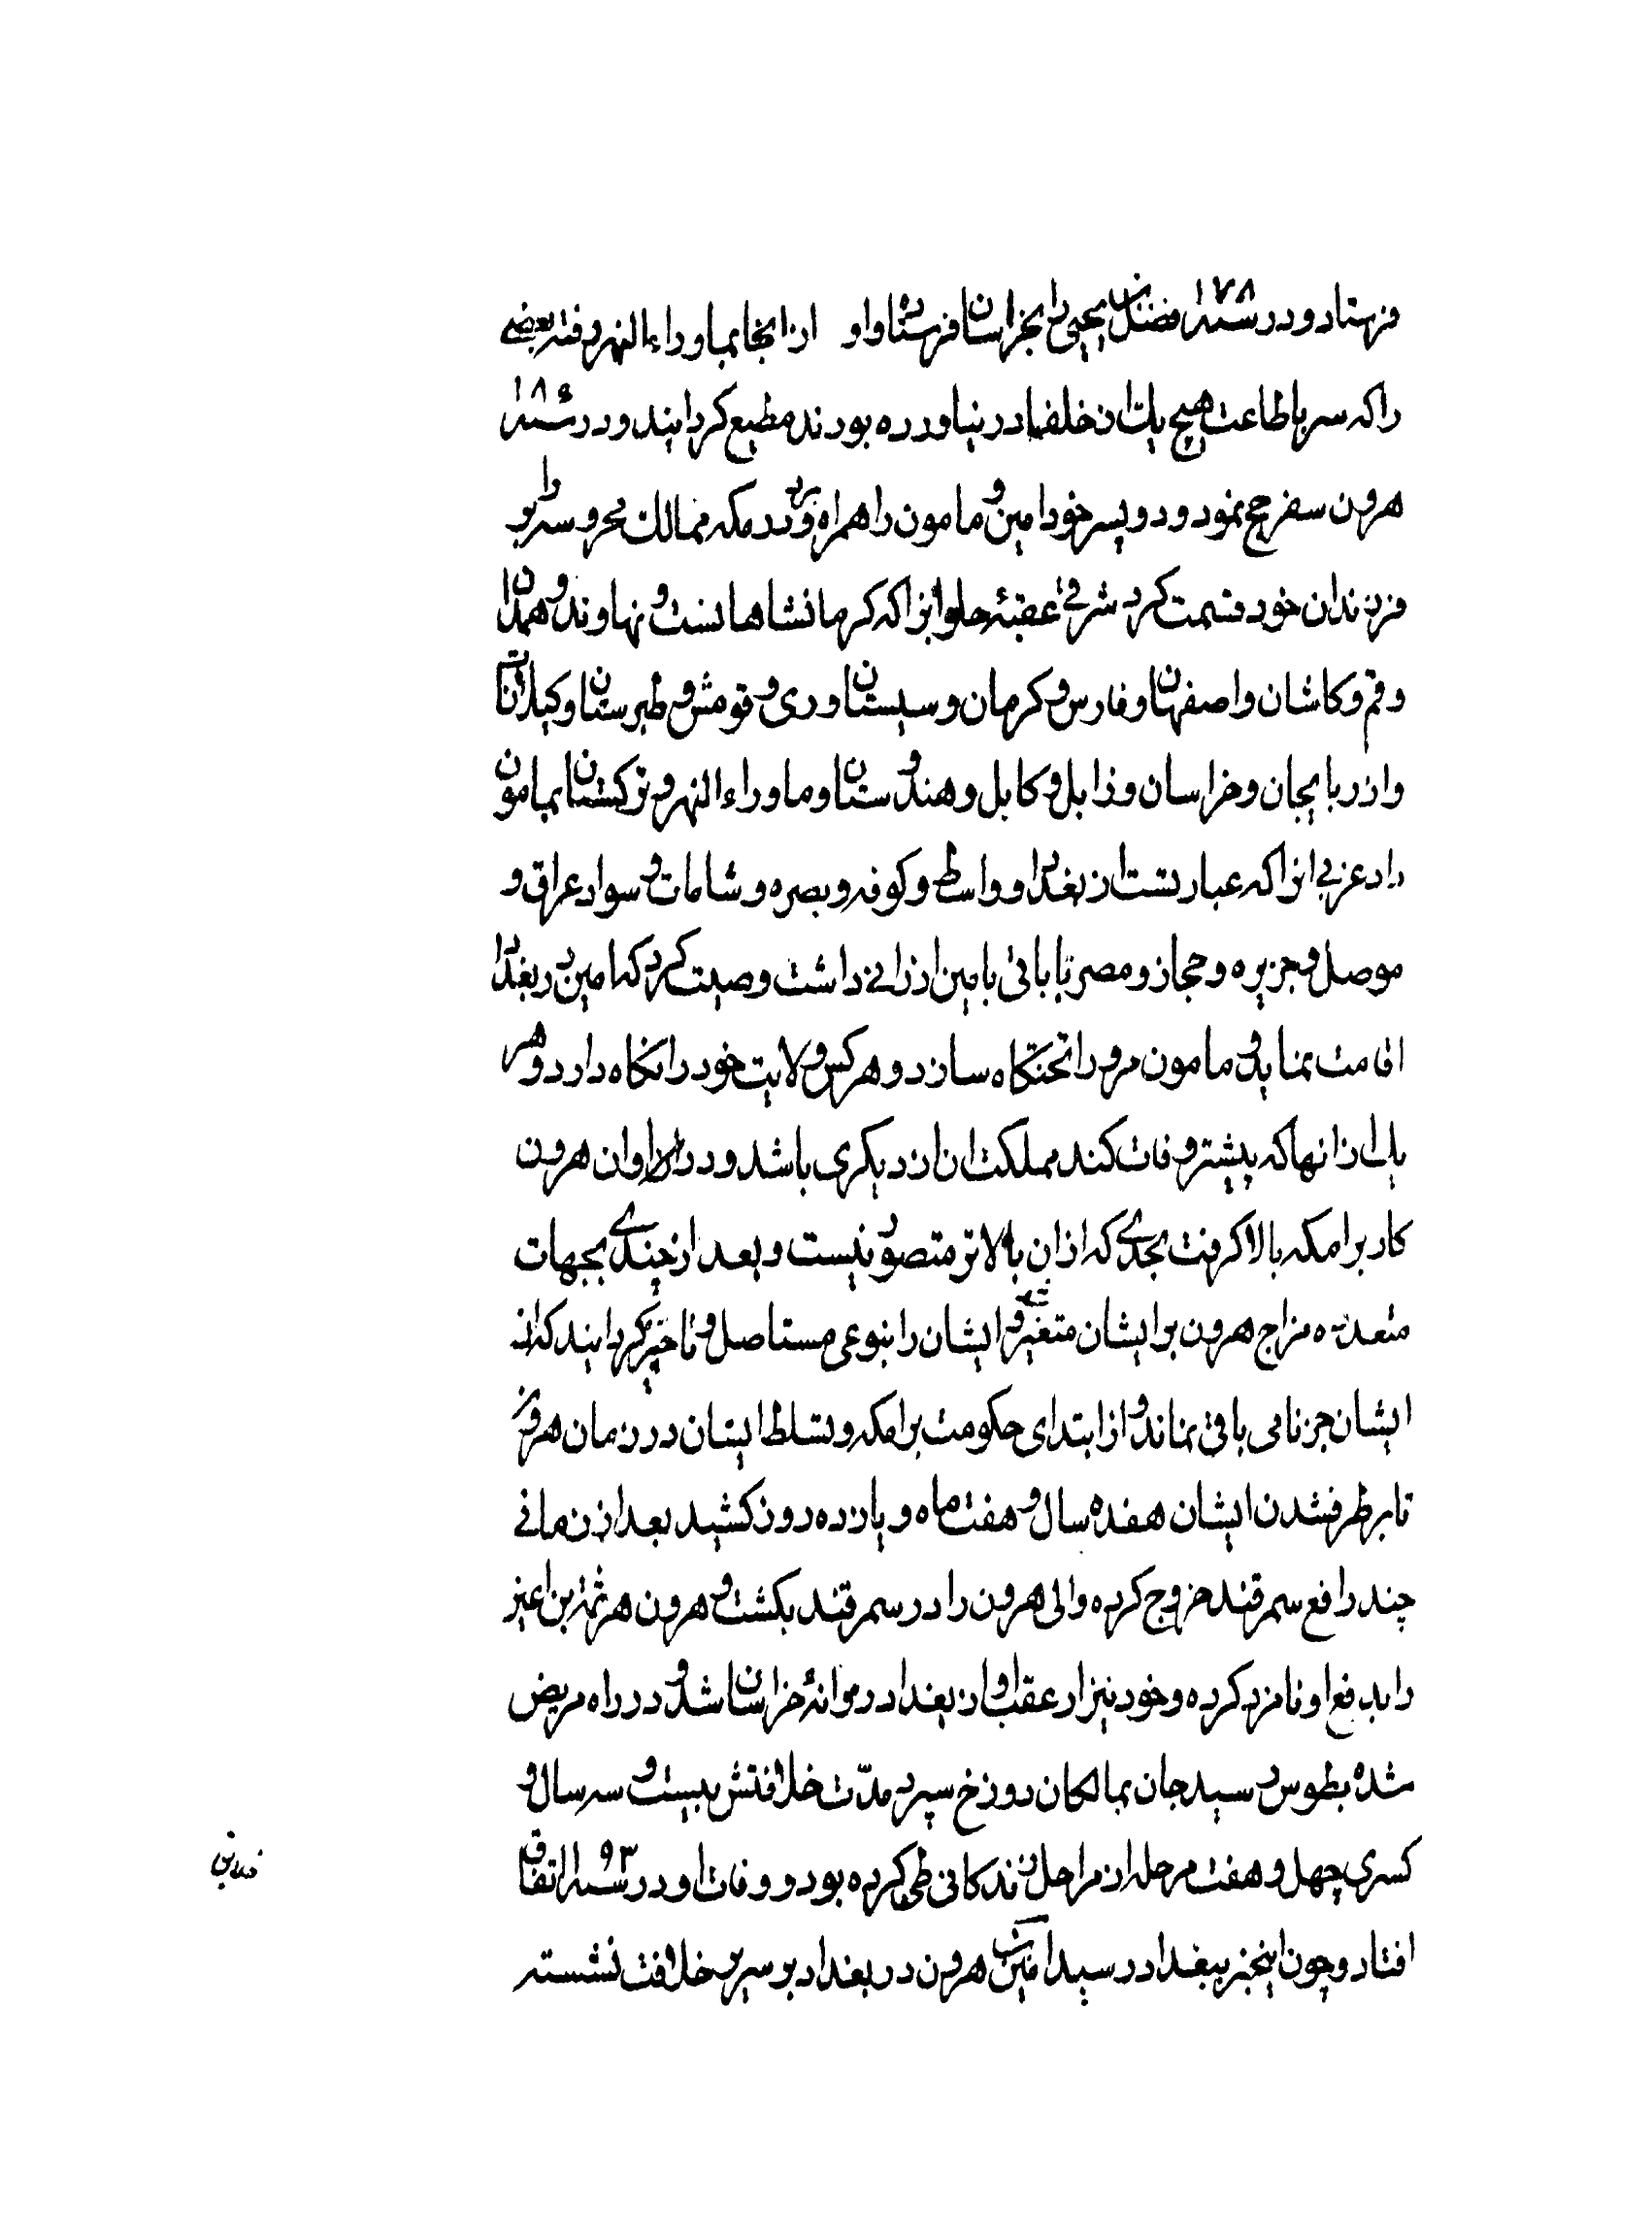 فرستاد و در سنه ۱۷۸ فضل بن یحیی را بخراسان فرستاد و او از انجا بماوراء النهر رفته بعضی
را که سر باطاعت هیچ یك از خلفا در نیاورده بودند مطیع کردانید و در سنه ۱۸۶
هرون سفر حج نمود و دو پسر خود امین و مامون را همراه برد و در مکه ممالك محروسه را بر
فرزندان خود قسمت کرد شرقی عقبهٔ حلوانرا که کرمانشاهانست و نهاوند و همدان
و قم و کاشان و اصفهان و فارس و کرمان و سیستان و ری و قومش و طبرستان و کیلانات
و اذربایجان و خراسان و زابل و کابل و هندوستان و ماوراء النهر و ترکستان بمامون
داد غربی انرا که عبارتست از بغداد و واسط و کوفه و بصره و شامات و سواد عراق و
موصل و جزیره و حجاز و مصر تا باقی بامین ارزانی داشت وصیت کرد که امین در بغداد
اقامت نماید و مامون مرو را تختکاه سازد و هر کس ولایت خود را نکاه دارد و هر
یك از انها که پیشتر وفات کند مملکت ان از دیکری باشد و در اوان هرون
کار برامکه بالا کرفت بحدی که از ان بالاتر متصور نیست و بعد از چندی بجهات
متعدده مزاج هرون بر ایشان متغیر شد و ایشان را بنوعی مستاصل و ناچیز کردانید که از
ایشان جز نامی باقی نماند و از ابتدای حکومت برامکه و تسلط ایشان در زمان هرون
تا برطرف شدن ایشان هفده سال و هفت ماه و پانزده روز کشید بعد از زمانی
چند رافع سمرقند خروج کرده والی هرون را در سمرقند بکشت و هرون هرثمة بن اعین
را بدفع او نامزد کرده و خود نیز از عقب او از بغداد روانهٔ خراسان شد و در راه مریض
شده بطوس رسید جان بمالکان دوزخ سپرد مدّت خلافتش بیست و سه سال و
کسری چهل و هفت مرحله از مراحل زندکانی طی کرده بود و وفات او در سنه ۱۹۳ اتفاق
افتاد و چون اینخبر ببغداد رسید امین بن هرون در بغداد بر سریر خلافت نشسته